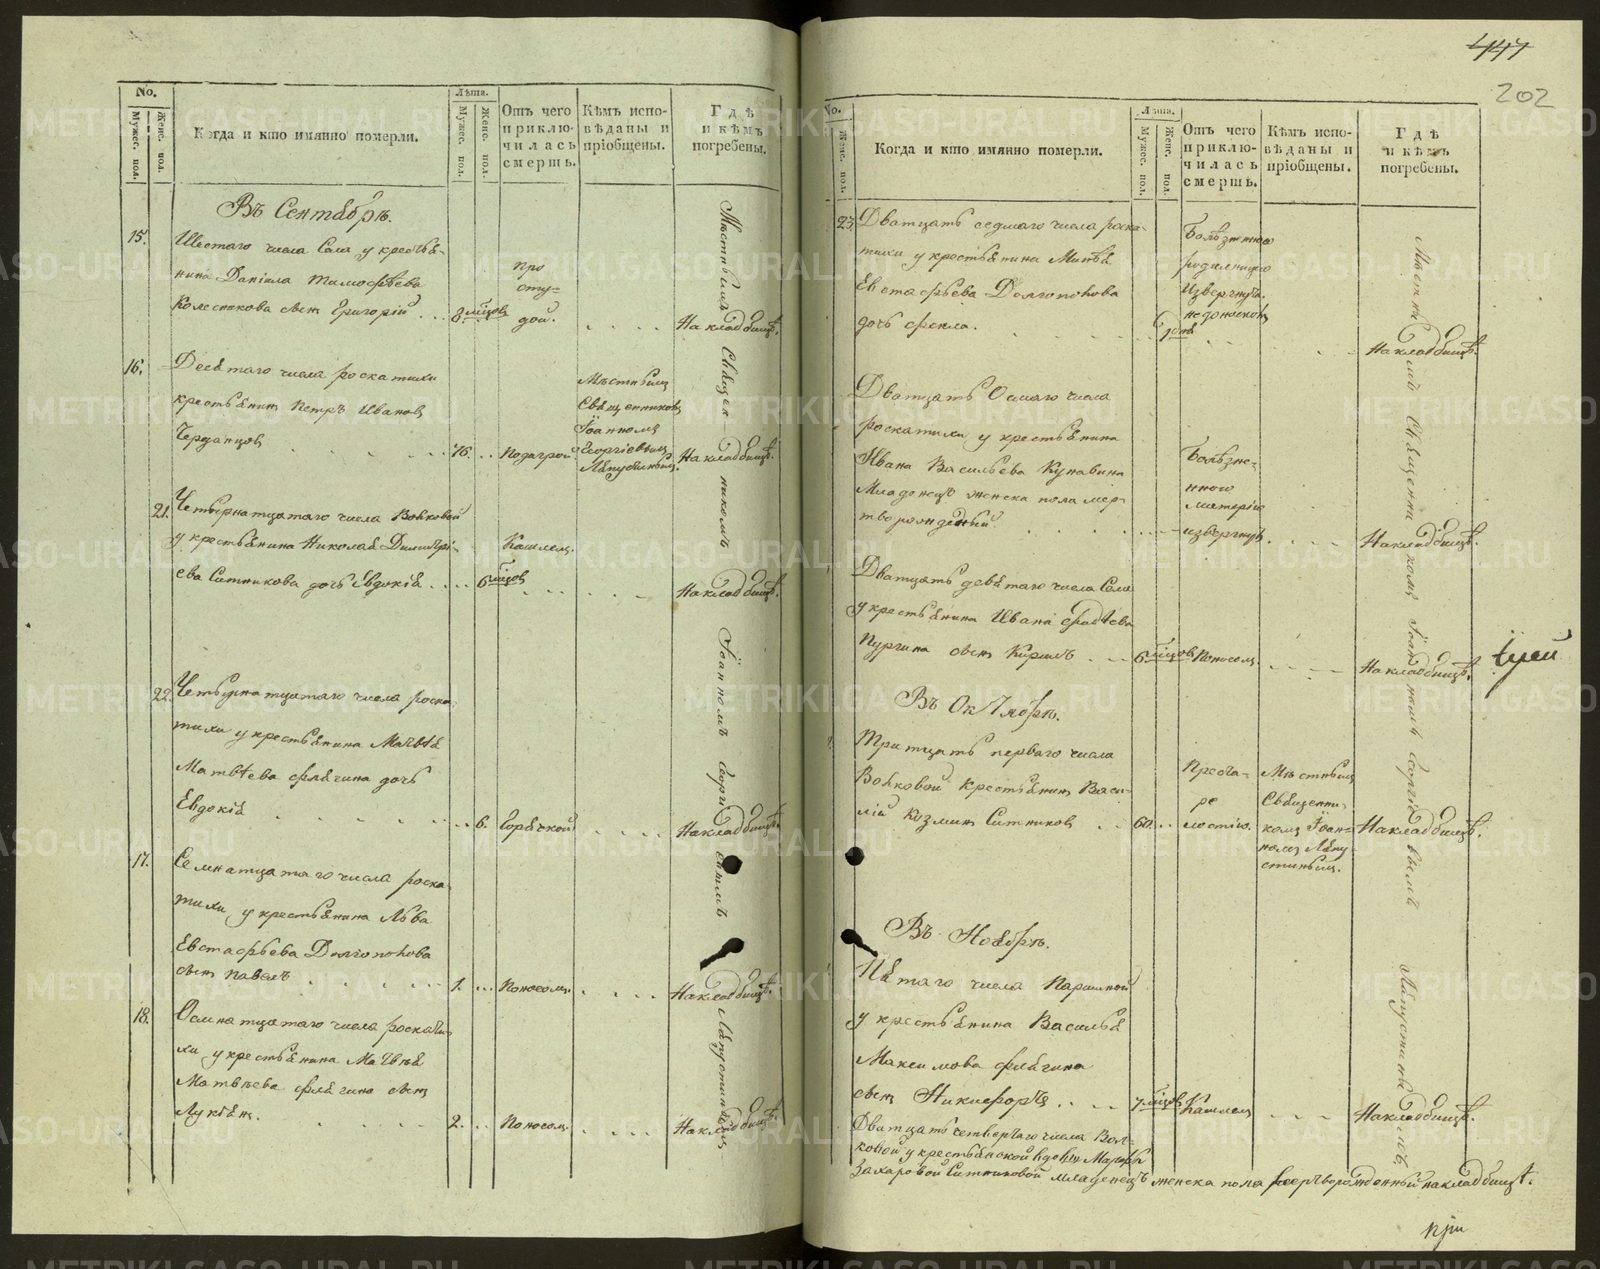 447
202
No.
Мужес. пол.
Женс. пол.
Когда и кто имянно померли.
Лѣта.
Мужес. пол.
Женс. пол.
Отъ чего
приклю-
чилась
смерть.
Кѣмъ испо-
вѣданы и
пріобщены.
Гдѣ
и кѣмъ
погребены.
Въ Сентябрѣ.
15.
Шестаго числа Села у крестья-
нина Даніила Тимофѣева
Колесникова сынъ Григорій
8 мѣсцовъ
про
сту-
дой.
На кладбищѣ.
16.
Десятаго числа роскатихи
крестьянинъ Петръ Ивановъ
Черданцовъ
76.
Подагрой
Мѣстнымъ
Священникомъ
Іоанномъ
Георгіевымъ
Ляпустинымъ.
На кладбищѣ.
21.
Четырнатцатаго числа Волковой
у крестьянина Николая Димитрі-
ева Ситникова дочь Евдокія
6 мѣсцовъ
Кашлемъ.
На кладбищѣ.
22.
Четырнатцатаго числа роска-
тихи у крестьянина Матвѣя
Матвѣева Флягина дочь
Евдокія
6.
Горячкой
На кладбищѣ.
17.
Семнатцатаго числа роска-
тихи у крестьянина Льва
Евстафьева Долгополова
сынъ Павелъ
1.
Поносомъ.
На кладбищѣ.
18.
Осмнатцатаго числа роскати-
хи у крестьянина Матвѣя
Матвѣева Флягина сынъ
Лукіянъ.
2.
Поносомъ.
На кладбищѣ.
Мѣстнымъ Священникомъ Іоанномъ Георгіевымъ Ляпустинымъ
No.
Женс. пол.
Когда и кто имянно померли.
Лѣта.
Мужес. пол.
Женс. пол.
Отъ чего
приклю-
чилась
смерть.
Кѣмъ испо-
вѣданы и
пріобщены.
Гдѣ
и кѣмъ
погребены.
23.
Дватцать седмаго числа роска-
тихи у крестьянина Минѣя
Евстафьева Долгополова
дочь Фекла.
Болѣзнію
родильницы
извергнута
недоноскомъ
На кладбищѣ.
Дватцать Осмаго числа
роскатихи у крестьянина
Ивана Васильева Кунавина
Младенецъ женска пола мер-
творожденный
Болѣзне-
нною
матерію
извергнутъ
На кладбищѣ.
Дватцать девятаго числа Села
у крестьянина Ивана Фадѣева
Пургина сынъ Кирилъ
6 мѣсцовъ
Поносомъ
На кладбищѣ.
Въ Октябрѣ.
Тритцать перваго числа
Волковой Крестьянинъ Васи-
лій Козминъ Ситниковъ
60.
Преста-
ре
лостію.
Мѣстнымъ
Священни-
комъ Іоан-
номъ Ляпу-
стинымъ.
На кладбищѣ.
Въ Ноябрѣ.
Пятаго числа Паршиной
у крестьянина Василья
Максимова Флягина
сынъ Никифоръ
7 мѣсцовъ
Кашлемъ
На кладбищѣ.
Дватцать четвертаго числа Вол-
ковой у крестьянской вдовы Марфы
Захаровой Ситниковой младенецъ женска пола мертворожденный на кладбищѣ.
Мѣстнымъ Священникомъ Іоанномъ Георгіевымъ Ляпустинымъ.
іерей
при
METRIKI.GASO-URAL.RU